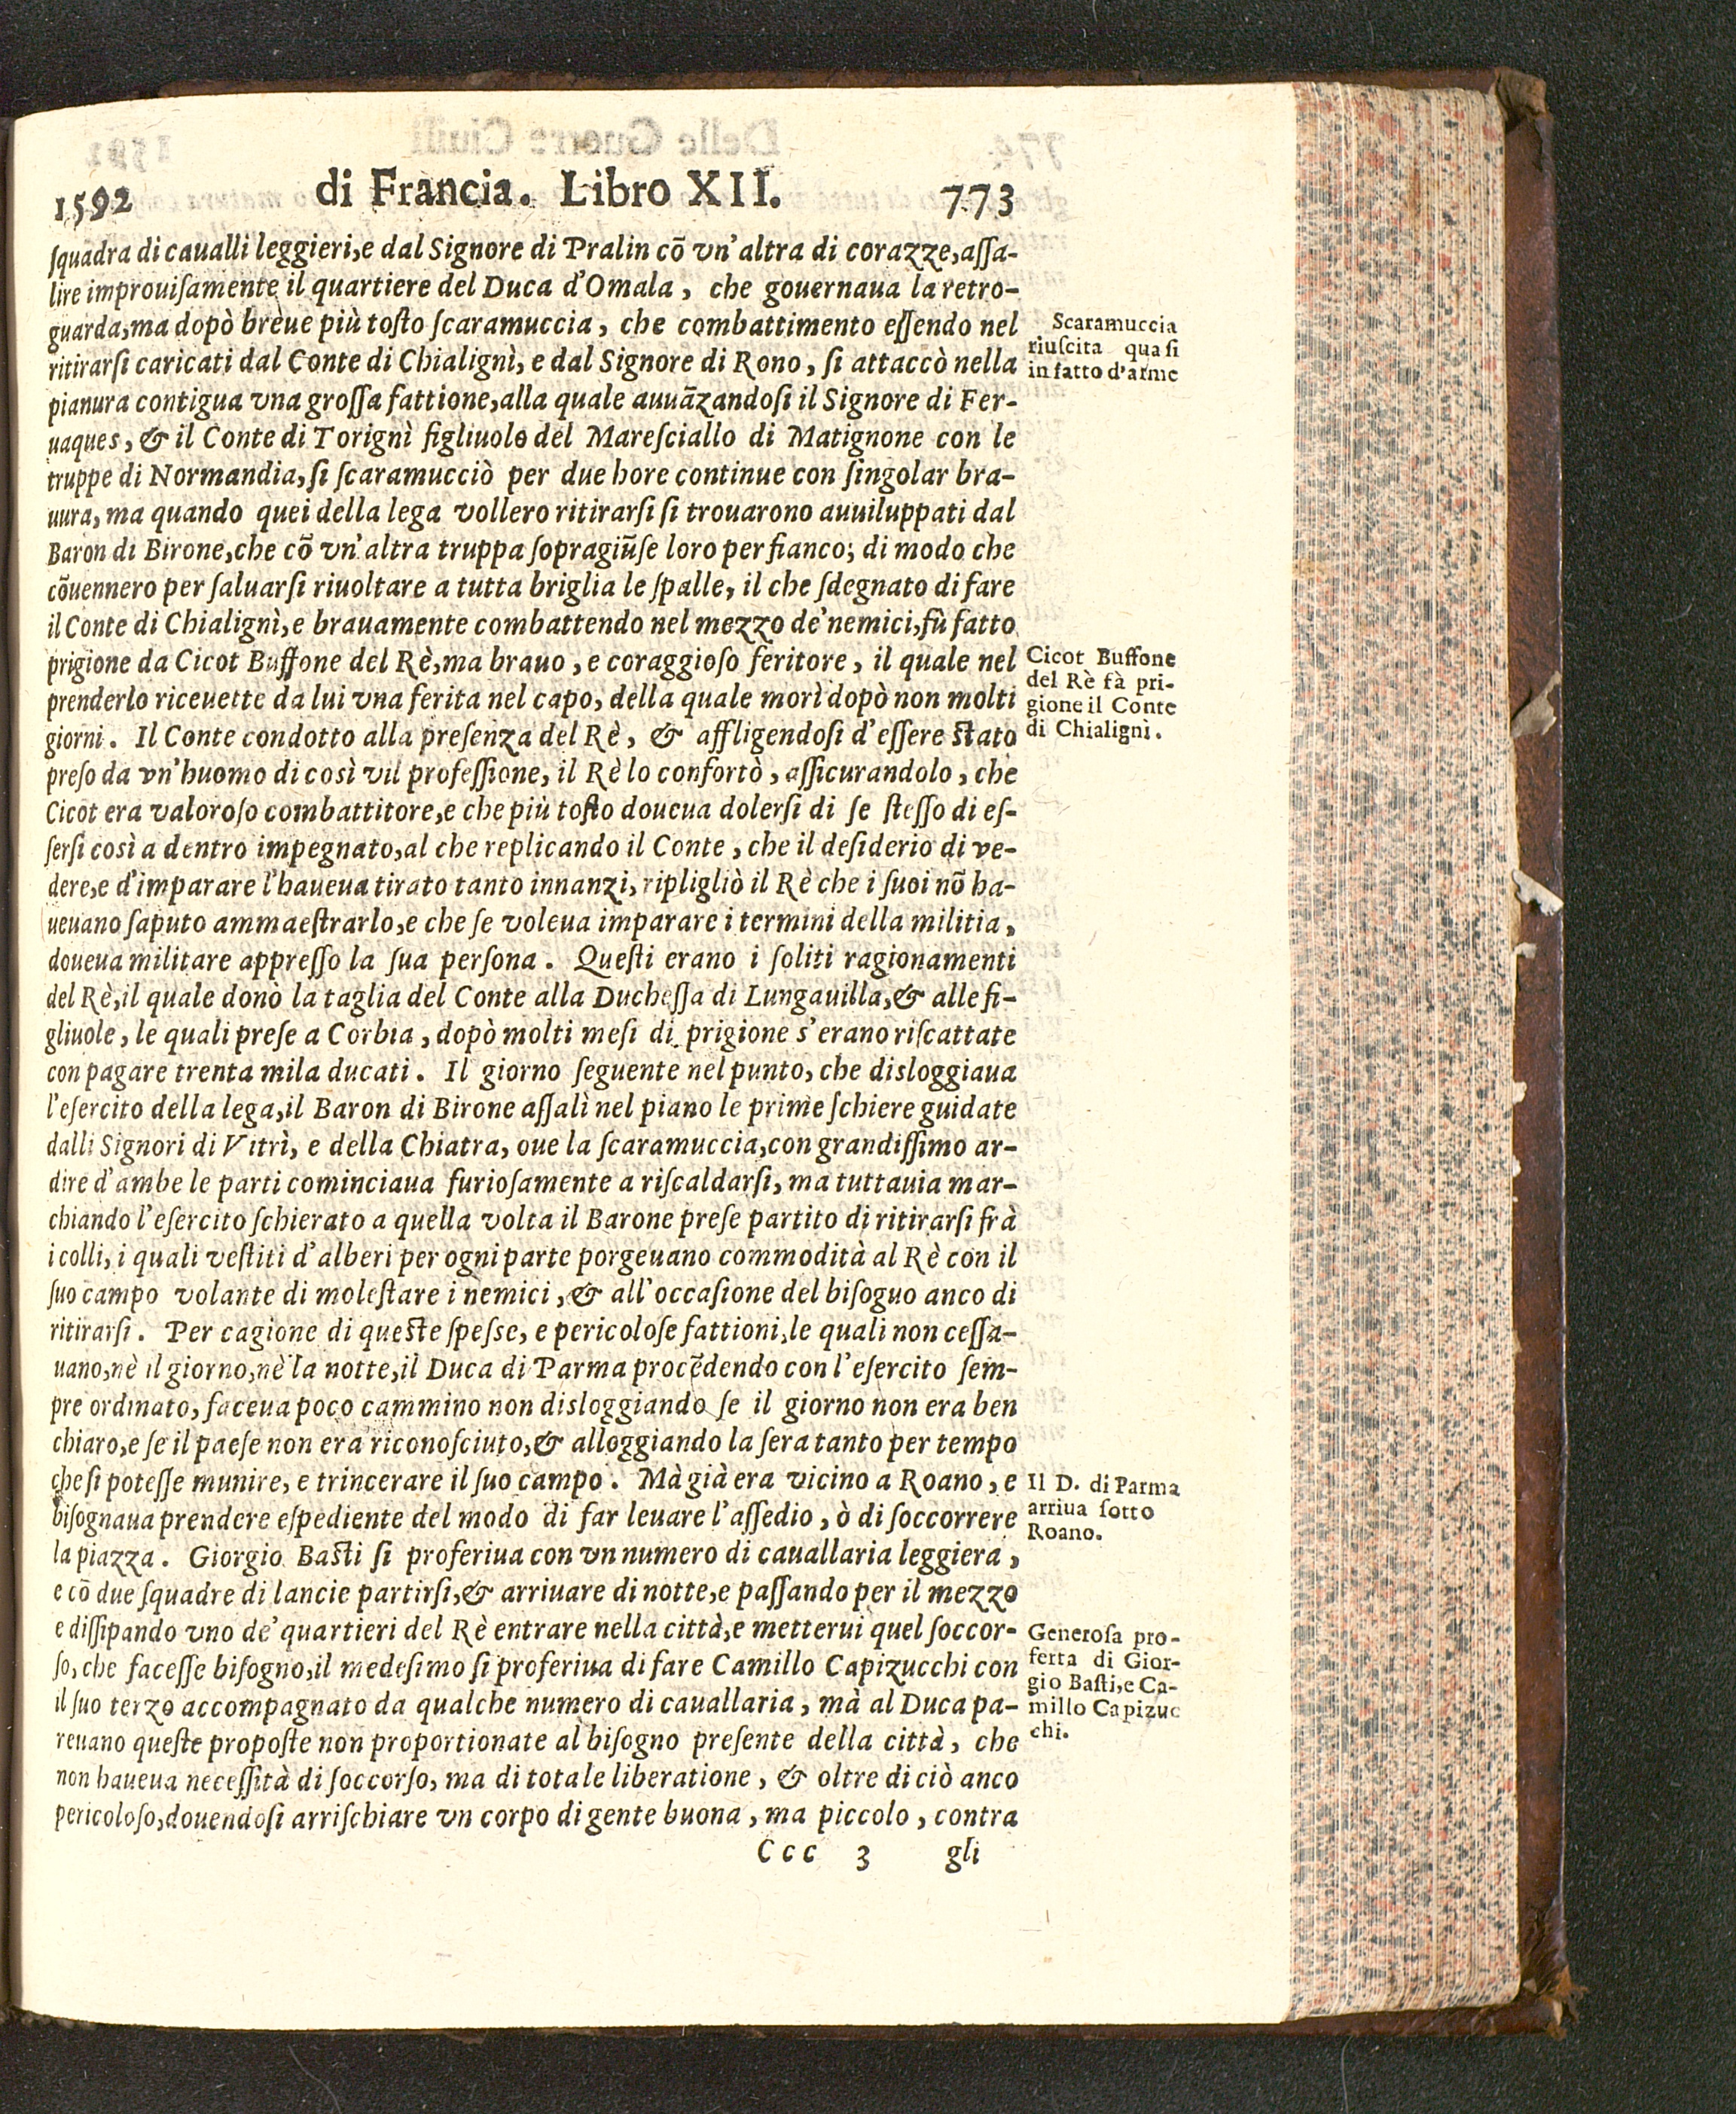 1592 di Francia. Libro XII. 773
ſquadra di caualli leggieri,e dal Signore di Pralin cõ vn'altra di corazze,aſſa-
lire improuiſamente il quartiere del Duca d'Omala, che gouernaua la retro-
guarda,ma dopò brèue più toſto ſcaramuccia, che combattimento eſſendo nel
ritirarſi caricati dal Conte di Chialignì, e dal Signore di Rono, ſi attaccò nella
pianura contigua vna groſſa fattione,alla quale auuãzandoſi il Signore di Fer-
uaques, & il Conte di Torignì figliuolo del Mareſciallo di Matignone con le
truppe di Normandia, ſi ſcaramucciò per due hore continue con ſingolar bra-
uura, ma quando quei della lega vollero ritirarſi ſi trouarono auuiluppati dal
Baron di Birone,che cõ vn'altra truppa ſopragiũſe loro per fianco; di modo che
cõuennero per ſaluarſi riuoltare a tutta briglia le ſpalle, il che ſdegnato di fare
il Conte di Chialignì,e brauamente combattendo nel mezzo de' nemici,fù fatto
prigione da Cicot Buffone del Rè,ma brauo, e coraggioſo feritore, il quale nel
prenderlo riceuette da lui vna ferita nel capo, della quale morì dopò non molti
giorni. Il Conte condotto alla preſenza del Rè, & affligendoſi d'eſſere ſtato
preſo da vn'huomo di così vil profeſſione, il Rè lo confortò, aſſicurandolo, che
Cicot era valoroſo combattitore,e che più toſto doueua dolerſi di ſe ſteſſo di eſ-
ſerſi così a dentro impegnato,al che replicando il Conte, che il deſiderio di ve-
dere,e d'imparare l'haueua tirato tanto innanzi, ripligliò il Rè che i ſuoi nõ ha-
ueuano ſaputo ammaeſtrarlo,e che ſe voleua imparare i termini della militia,
doueua militare appreſſo la ſua perſona. Queſti erano i ſoliti ragionamenti
del Rè,il quale donò la taglia del Conte alla Ducheſſa di Lungauilla,& alle fi-
gliuole, le quali preſe a Corbia, dopò molti meſi di prigione s'erano riſcattate
con pagare trenta mila ducati. Il giorno ſeguente nel punto, che disloggiaua
l'eſercito della lega,il Baron di Birone aſſalì nel piano le prime ſchiere guidate
dalli Signori di Vitrì, e della Chiatra, oue la ſcaramuccia,con grandiſſimo ar-
dire d'ambe le parti cominciaua furioſamente a riſcaldarſi, ma tuttauia mar-
chiando l'eſercito ſchierato a quella volta il Barone preſe partito di ritirarſi frà
i colli, i quali veſtiti d'alberi per ogni parte porgeuano commodità al Rè con il
ſuo campo volante di moleſtare i nemici, & all'occaſione del biſoguo anco di
ritirarſi. Per cagione di queſte ſpeſſe, e pericoloſe fattioni,le quali non ceſſa-
uano,nè il giorno,nè la notte,il Duca di Parma procẽdendo con l'eſercito ſem-
pre ordinato, faceua poco cammino non disloggiando ſe il giorno non era ben
chiaro,e ſe il paeſe non era riconoſciuto,& alloggiando la ſera tanto per tempo
che ſi poteſſe munire, e trincerare il ſuo campo. Mà già era vicino a Roano, e
biſognaua prendere eſpediente del modo di far leuare l'aſſedio, ò di ſoccorrere
la piazza. Giorgio Baſti ſi proferiua con vn numero di cauallaria leggiera,
e cõ due ſquadre di lancie partirſi,& arriuare di notte,e paſſando per il mezzo
e diſſipando vno de' quartieri del Rè entrare nella città,e metterui quel ſoccor-
ſo, che faceſſe biſogno,il medeſimo ſi proferiua di fare Camillo Capizucchi con
il ſuo terzo accompagnato da qualche numero di cauallaria, mà al Duca pa-
reuano queſte propoſte non proportionate al biſogno preſente della città, che
non haueua neceſſità di ſoccorſo, ma di totale liberatione, & oltre di ciò anco
pericoloſo,douendoſi arriſchiare vn corpo di gente buona, ma piccolo, contra
Ccc 3 gli
Scaramuccia
riuſcita quaſi
in fatto d'arme
Cicot Buffone
del Rè fà pri-
gione il Conte
di Chialignì.
Il D. di Parma
arriua ſotto
Roano.
Generoſa pro-
ferta di Gior-
gio Baſti,e Ca-
millo Capizuc
chi.